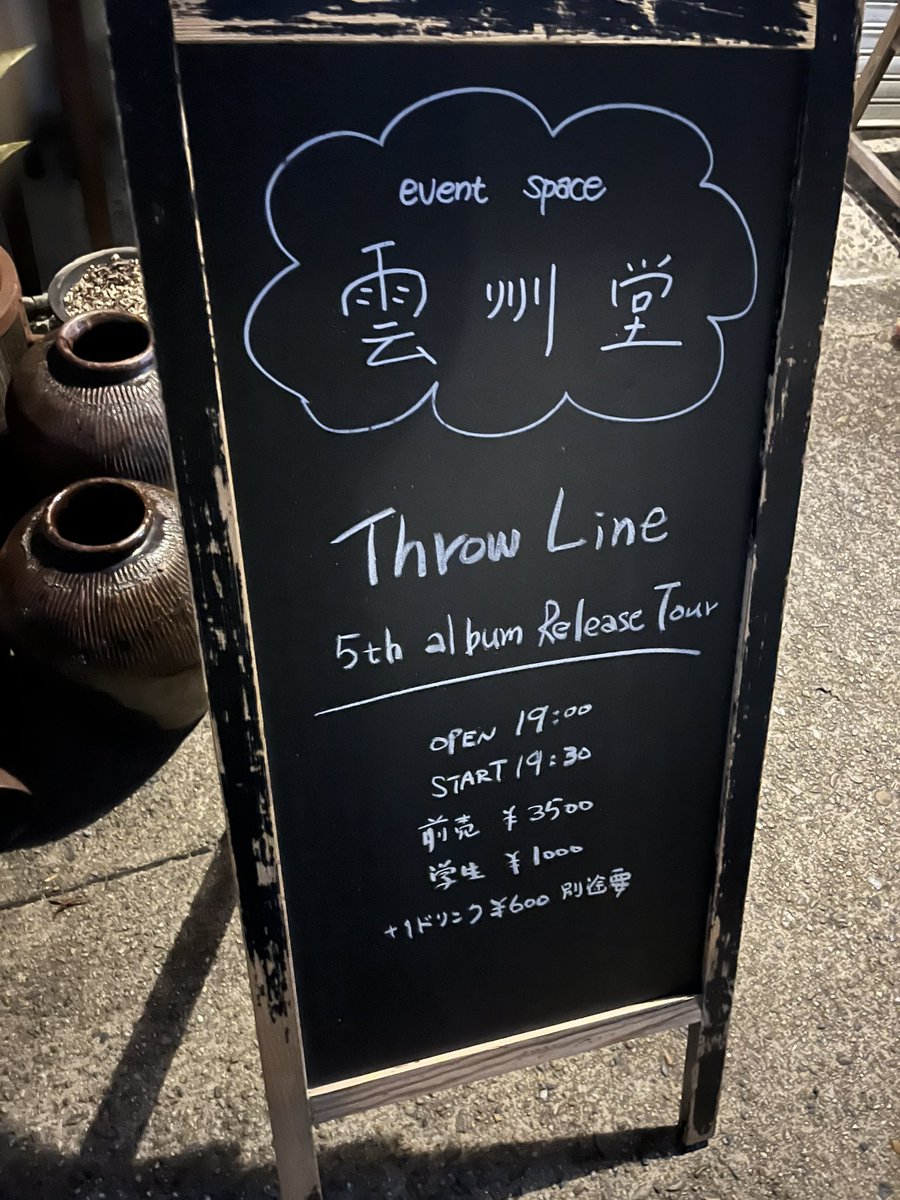 event space
雲州堂
Throw Line
5th album Release Tour
OPEN 19:00
START 19:30
前売 ¥3500
学生 ¥1000
+1ドリンク¥600 別途要